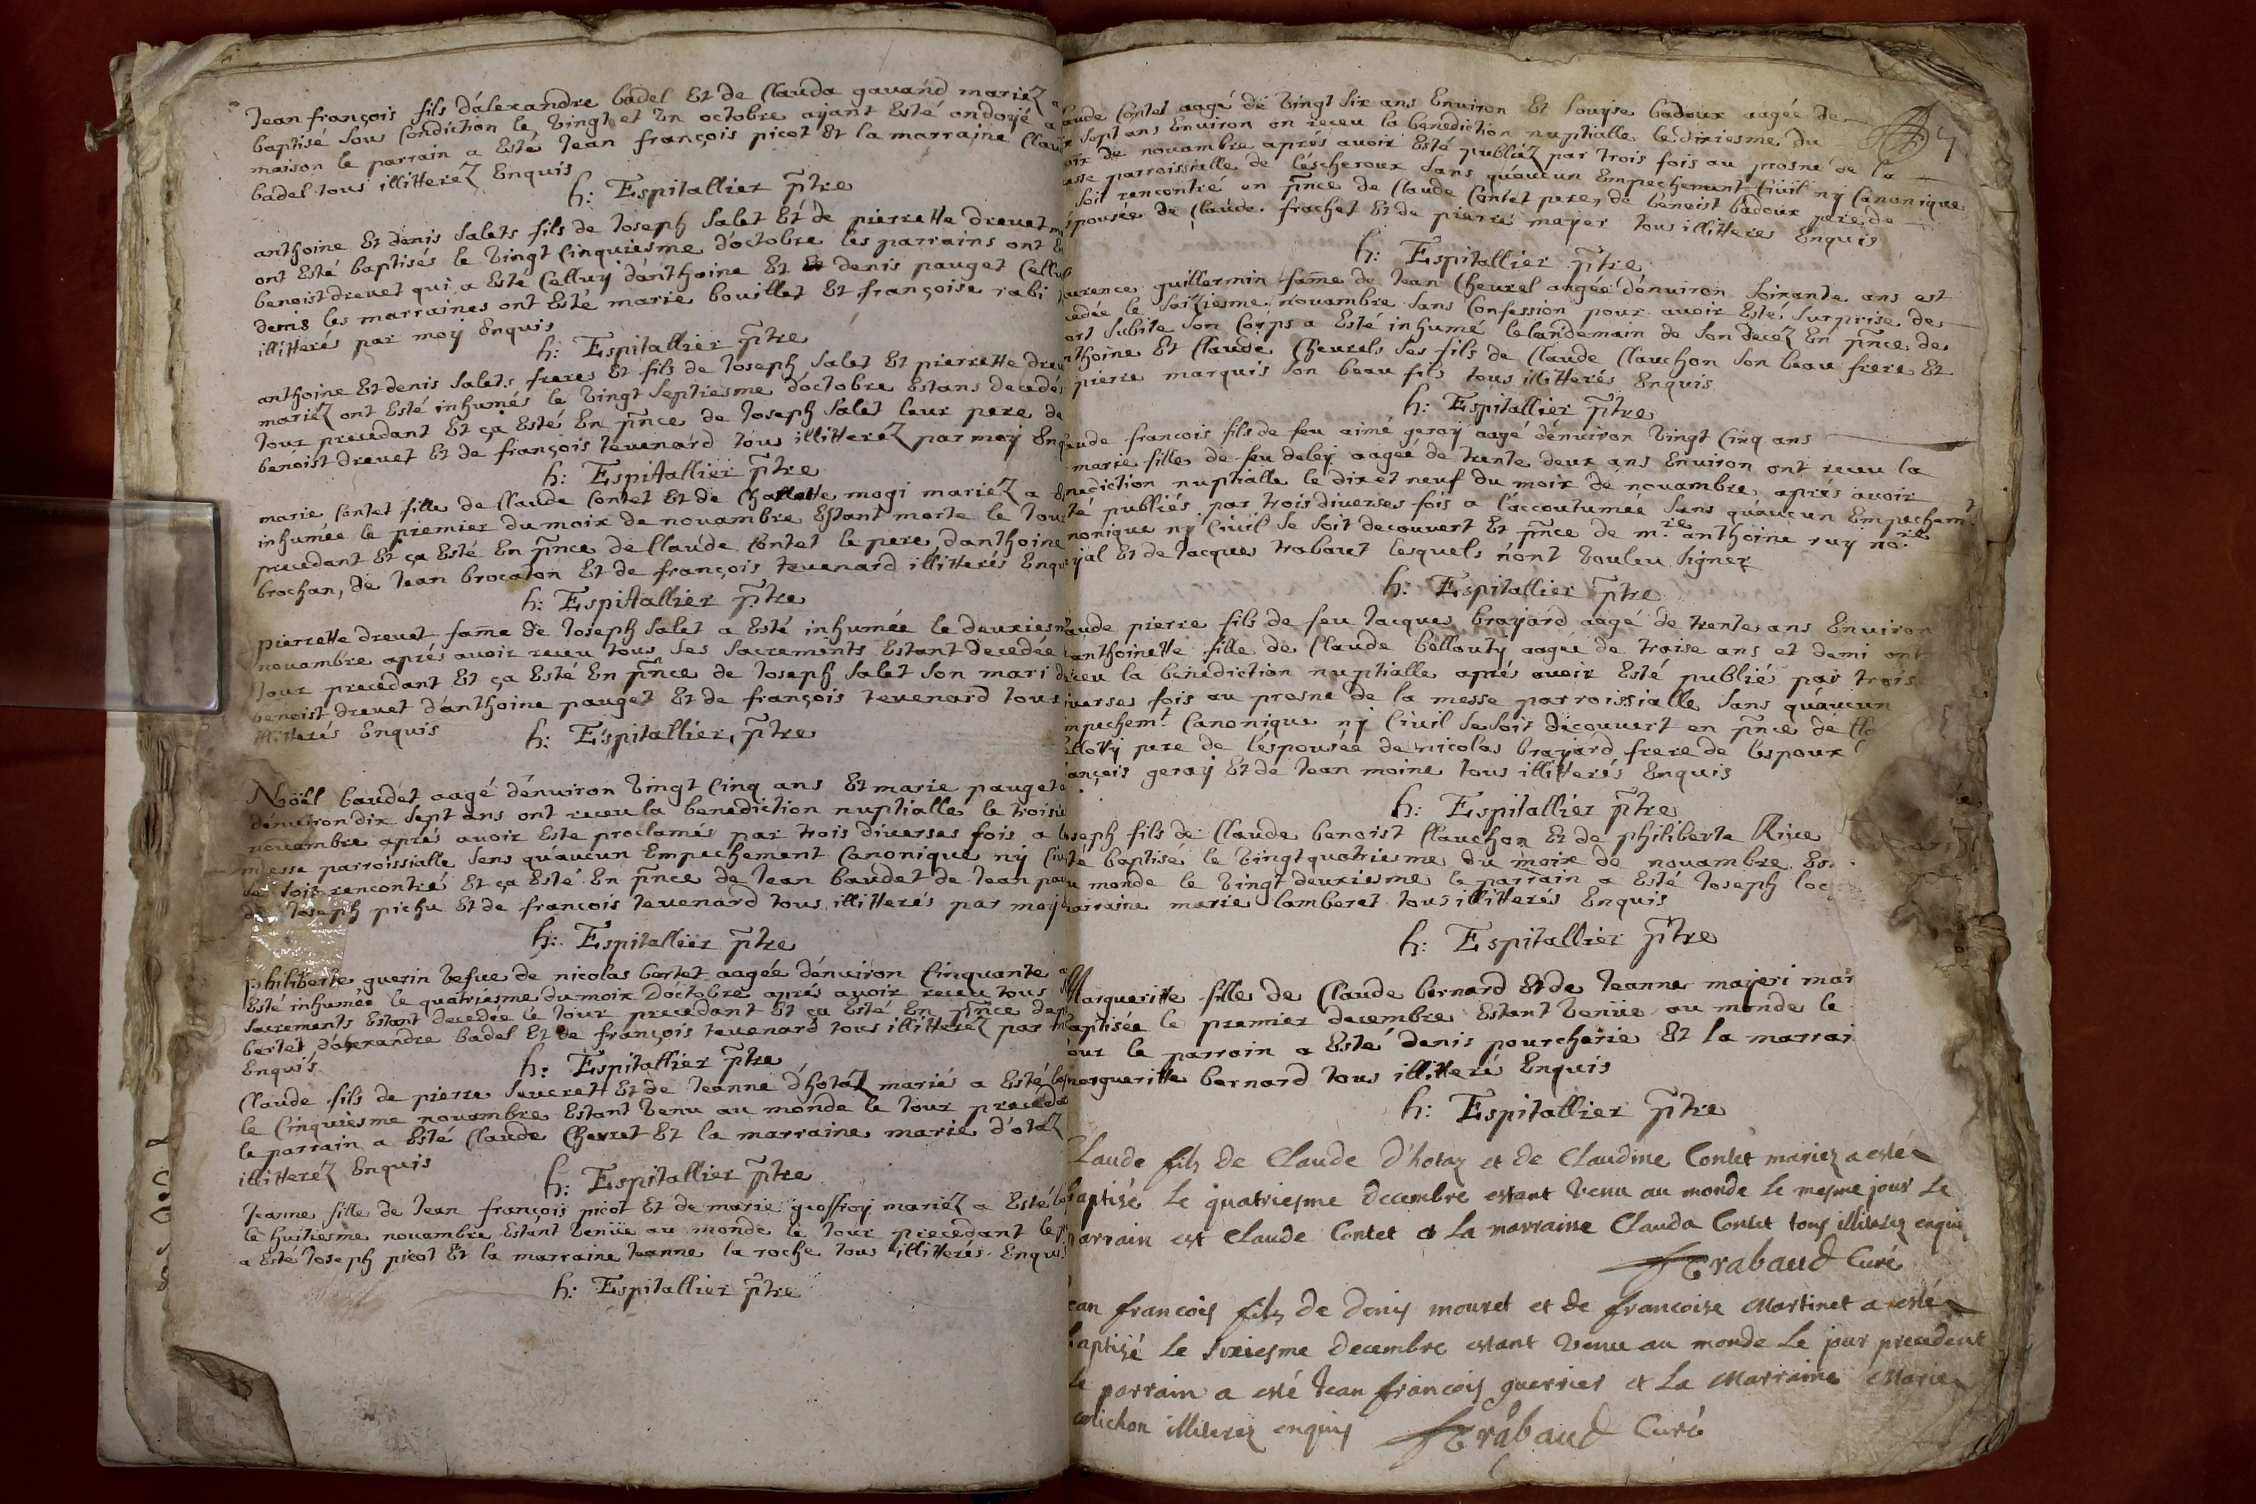 Jean françois fils d'alexandre badel Et de Clauda gavand mariéz a
baptisé sous Condiction le vingt et un octobre ayant Esté ondoyé a
maison le parrain a Esté Jean françois picot Et la marraine Clau
badel tous illitteréz Enquis
h: Espitallier p̃tre
anthoine Et denis Salets fils de Joseph Salet Et de pierrette drevet
ont Esté baptisés le vingt Cinquiesme d'octobre les parrains ont
benoist drevet qui a Esté Celluy d'anthoine Et denis pauget Cellu
denis les marraines ont Esté marie bouillet Et françoise rabi
illitterés par moy Enquis
h: Espitallier p̃tre
anthoine Et denis Salets freres Et fils de Joseph Salet Et pierrette drev
mariéz ont Esté inhumés le vingt Septiesme d'octobre Estans decedés
Jour precedant Et ça Esté En p̃nce de Joseph Salet leur pere de
benoist drevet Et de françois tevenard tous illitteréz par moy Enq
h: Espitallier p̃tre
marie Contet fille de Claude Contet Et de Charlotte mogi mariéz a
inhumée le premier du moix de novambre Estant morte le Jour
precedant Et ça Esté En p̃nce de Claude Contet le pere d'anthoine
brochan, de Jean brocaton Et de françois tevenard illitterés Enqu
h: Espitallier p̃tre
pierrette drevet fam̃e de Joseph Salet a Esté inhumée le deuxiesm
novambre aprés avoir receu tous Ses Sacrements Estant decedée
Jour precedant Et ça Esté En p̃nce de Joseph Salet Son mari d
benoist drevet d'anthoine pauget Et de françois tevenard tous
illitterés Enquis
h: Espitallier, p̃tre
Noël baudet aagé d'environ vingt Cinq ans Et marie pauget
d'environ dix Sept ans ont receu la benediction nuptialle le troisi
novambre aprés avoir Este proclamés par trois diverses fois a
messe parroissialle Sens qu'aucun Empechement Canonique ny Civ
Se Soit rencontré Et ça Esté En p̃nce de Jean baudet de Jean pau
de Joseph pichu Et de francois tevenard tous illitterés par moy
h: Espitallier p̃tre
philiberte guerin vefue de nicolas bertet aagée d'environ Cinquante
Esté inhumée le quatriesme du moix d'octobre aprés avoir receu tous
Sacrements Estant decedée le Jour precedant Et ça Esté En p̃nce de
bertet d'alexandre badel Et de françois tevenard tous illitteréz par
Enquis
h: Espitallier p̃tre
Claude fils de pierre Sevcrett Et de Jeanne d'hotáz mariés a Esté
le Cinquiesme novambre Estant venu au monde le Jour preced
le parrain a Esté Claude Chevret Et la marraine marie d'otáz
illitteréz Enquis
h: Espitallier p̃tre
Jeanne fille de Jean françois picot Et de marie geoffroy mariéz a Esté
le huitiesme novambre Estant venüe au monde le Jour precedant le
a Esté Joseph picot Et la marraine Jeanne la roche tous illitterés Enquis
h: Espitallier p̃tre
aude Contet aagé de vingt Six ans Environ Et louyse badoux aagée de
Sept ans Environ on receu la benediction nuptialle le dixiesme du
oix de novambre aprés avoir Esté publiéz par trois fois au prosne de la
parroissialle de léscheroux Sans qu'aucun Empechement Civil ny Canonique
Soit rencontré en p̃nce de Claude Contet pere, de benoist badoux pere de
épousée de Claude frachet Et de pierre mayer tous illitteres Enquis
h: Espitallier p̃tre
aurence guillermin fam̃e de Jean Chevrel aagée d'environ Soixante ans est
cedée le Saiziesme novambre Sans Confession pour avoir Esté Surprise de
ort Subite Son Corps a Esté inhumé le landemain de Son decéz En p̃nce de
nthoine Et Claude Chevrels Ses fils de Claude Clauchon Son beau frere Et
pierre marquis Son beau fils tous illitterés Enquis
h: Espitallier p̃tre
aude francois fils de feu aimé geray aagé d'environ vingt Cinq ans
marie fille de feu deley aagée de trente deux ans Environ ont receu la
nediction nuptialle le dix et neuf du moix de novambre, aprés avoir
té publiés par trois diverses fois a l'accoutumée Sans qu'aucun Empecham.t
nonique ny Civil Se Soit decouvert Et p̃nce de m.re anthoine ruy no.re
yal Et de Jacques trabouet lesquels n'ont voulu Signer
h: Espitallier p̃tre
aude pierre fils de feu Jacques brayard aagé de trente ans Environ
anthoinette fille de Claude bellouty aagée de traise ans et demi ont
ceu la benediction nuptialle aprés avoir Esté publié par trois
iverses fois au prosne de la messe parroissialle Sans qu'aucun
mpechem.t Canonique ny Civil Se Soit découvert en p̃nce de
pere de l'éspousée de nicolas brayard frere de l'espoux
ançois geray Et de Jean moine tous illitterés Enquis
h: Espitallier p̃tre
oseph fils de Claude benoist Clauchon Et de philiberte Rive
té baptisé le vingt quatriesme du moix de novambre
u monde le vingt deuxiesme le parrain a Esté Joseph
arraine marie lamberet tous illitterés Enquis
h: Espitallier p̃tre
Margueritte fille de Claude bernard Et de Jeanne mayeri mar
aptisée le premier decembre Estant venüe au monde le
our le parrain a Esté denis pourcherie Et la marrai
margueritte bernard tous illitteré Enquis
h: Espitallier p̃tre
Claude fils de Claude D'hotaz et de Claudine Contet mariez a esté
baptisé Le quatriesme decembre estant venu au monde Le mesme jour Le
parrain est Claude Contet et La marraine Clauda Contet tous illiterez enquis
Trabaud Curé
ean francois fils de denis mouret et de francoise Martinet a esté
baptisé Le sixiesme decembre estant venu au monde Le jour precedent
Le parrain a esté Jean francois guerrier et La Marraine Marie
illiterez enquis
Trabaud Curé